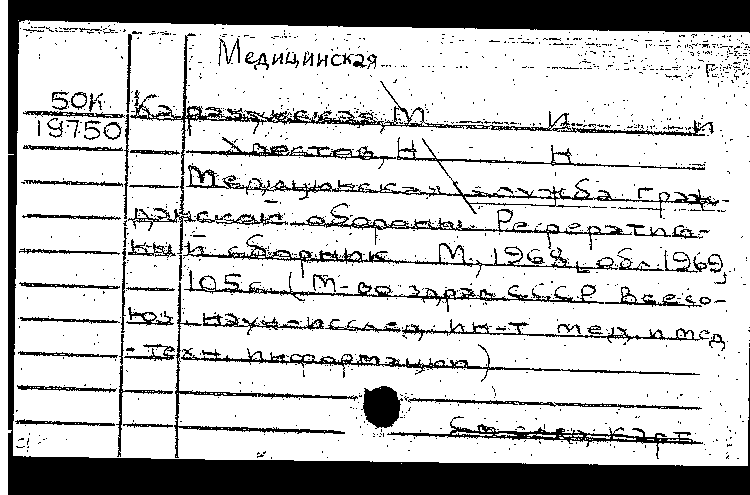 Медицинская
50К Карапужская, М И И
19750
Хвостов, Н Н
Медицинская служба граж-
данской обороны. Рефератив-
ный сборник М., 1968, обл. 1969,
105 с. (М-во здрав СССР Всесо-
юз. науч-исслед. ин-т мед. и мед
-техн. информации)
См след. карт